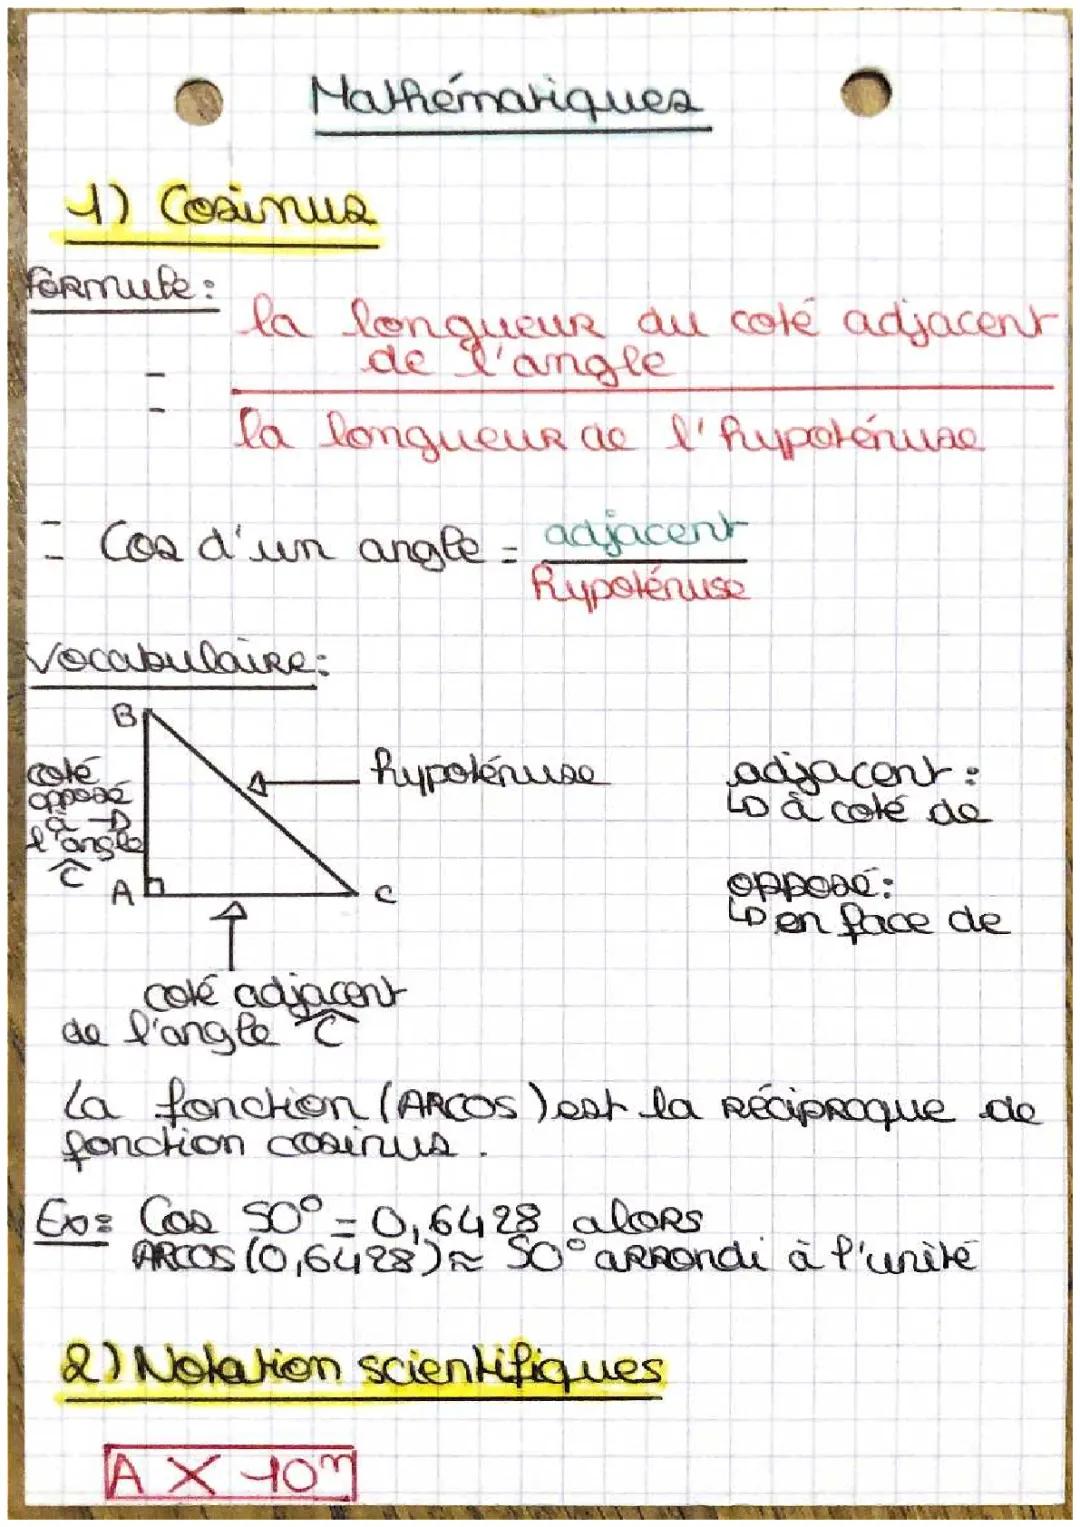 Mathématiques
1) Cosinus
formule:
= la longueur du coté adjacent
de l'angle
la longueur de l'hypoténuse
= Cos d'un angle = adjacent
hypoténuse
Vocabulaire:
B
coté
opposé
à
l'angle
Ĉ
hypoténuse
adjacent:
↳ à coté de
A
C
opposé:
↳ en face de
coté adjacent
de l'angle Ĉ
La fonction (ARCOS) est la réciproque de
fonction cosinus.
Ex: Cos 50° = 0,6428 alors
ARCOS (0,6428) ≈ 50° arrondi à l'unité
2) Notation scientifiques
A X 10ⁿ